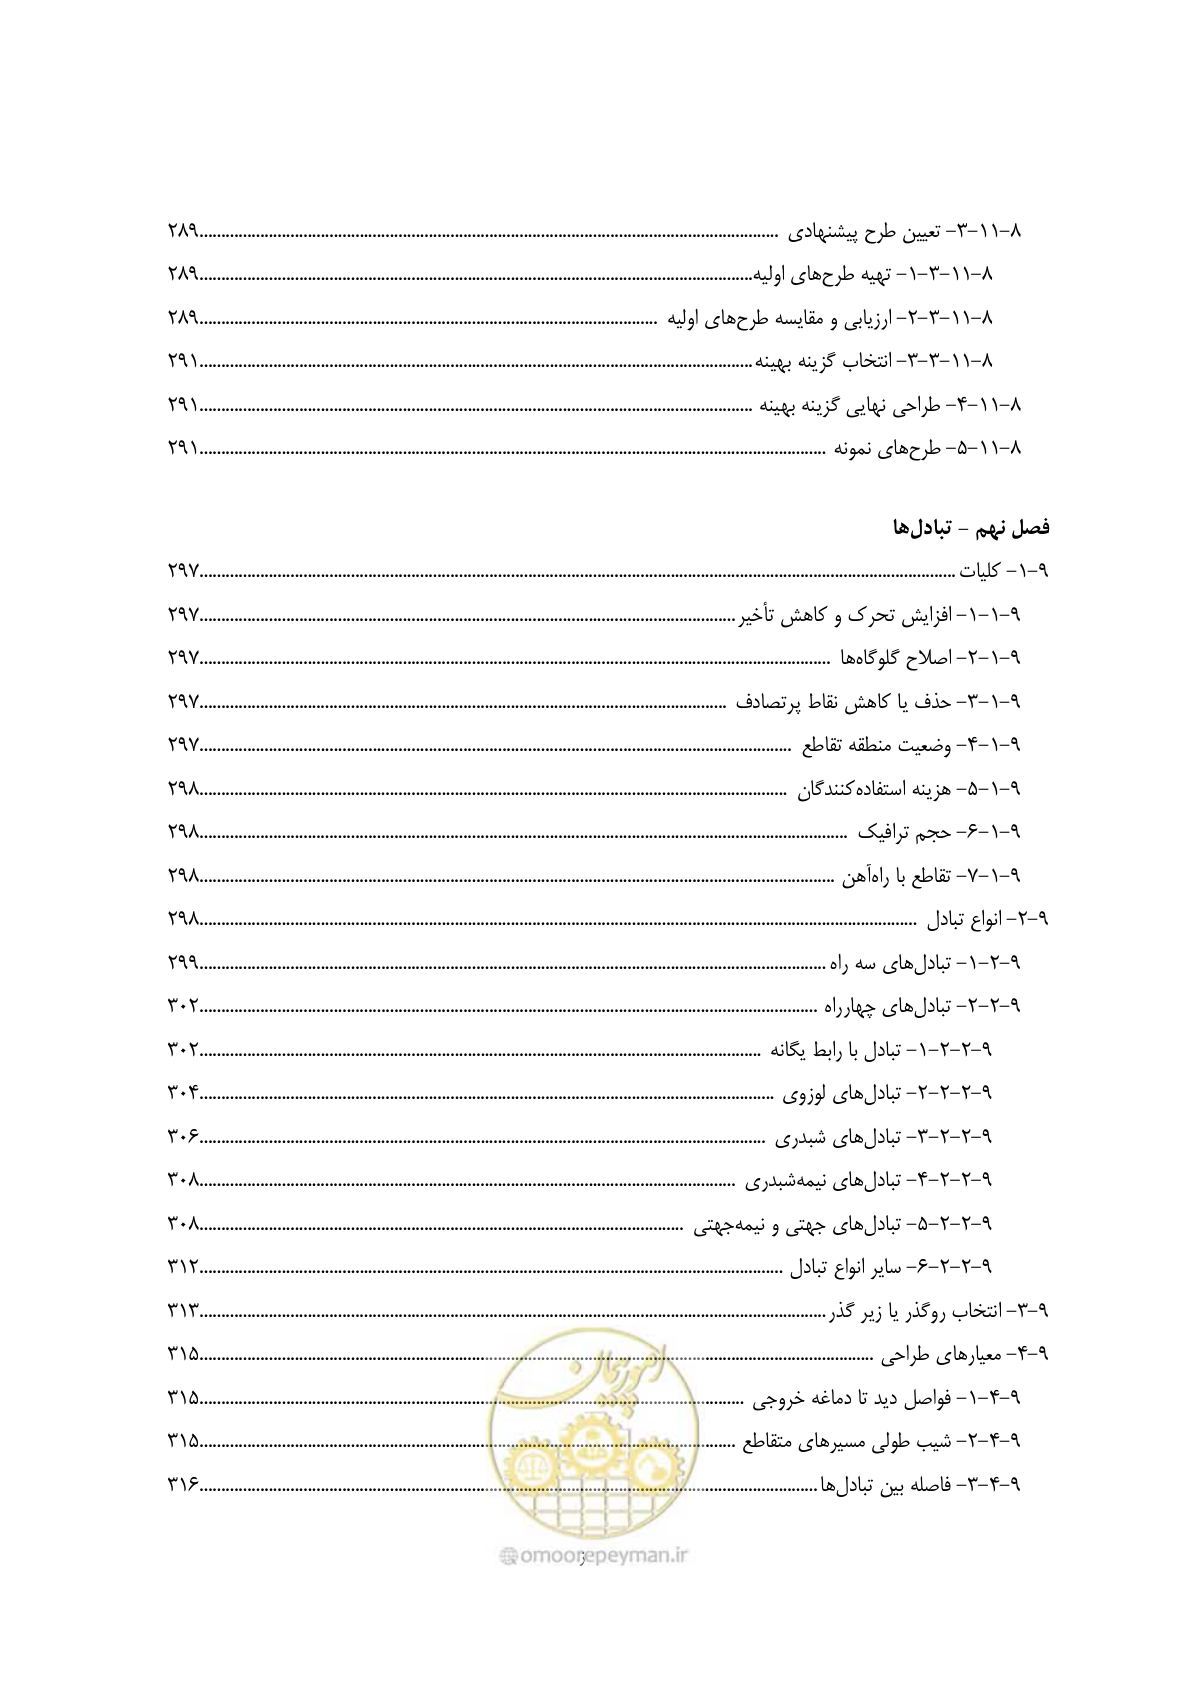 ۸-۱۱-۳- تعیین طرح پیشنهادی ........ ۲۸۹
۸-۱۱-۳-۱- تهیه طرح‌های اولیه ........ ۲۸۹
۸-۱۱-۳-۲- ارزیابی و مقایسه طرح‌های اولیه ........ ۲۸۹
۸-۱۱-۳-۳- انتخاب گزینه بهینه ........ ۲۹۱
۸-۱۱-۴- طراحی نهایی گزینه بهینه ........ ۲۹۱
۸-۱۱-۵- طرح‌های نمونه ........ ۲۹۱
فصل نهم – تبادل‌ها
۹-۱- کلیات ........ ۲۹۷
۹-۱-۱- افزایش تحرک و کاهش تأخیر ........ ۲۹۷
۹-۱-۲- اصلاح گلوگاه‌ها ........ ۲۹۷
۹-۱-۳- حذف یا کاهش نقاط پرتصادف ........ ۲۹۷
۹-۱-۴- وضعیت منطقه تقاطع ........ ۲۹۷
۹-۱-۵- هزینه استفاده‌کنندگان ........ ۲۹۸
۹-۱-۶- حجم ترافیک ........ ۲۹۸
۹-۱-۷- تقاطع با راه‌آهن ........ ۲۹۸
۹-۲- انواع تبادل ........ ۲۹۸
۹-۲-۱- تبادل‌های سه راه ........ ۲۹۹
۹-۲-۲- تبادل‌های چهارراه ........ ۳۰۲
۹-۲-۲-۱- تبادل با رابط یگانه ........ ۳۰۲
۹-۲-۲-۲- تبادل‌های لوزوی ........ ۳۰۴
۹-۲-۲-۳- تبادل‌های شبدری ........ ۳۰۶
۹-۲-۲-۴- تبادل‌های نیمه‌شبدری ........ ۳۰۸
۹-۲-۲-۵- تبادل‌های جهتی و نیمه‌جهتی ........ ۳۰۸
۹-۲-۲-۶- سایر انواع تبادل ........ ۳۱۲
۹-۳- انتخاب روگذر یا زیر گذر ........ ۳۱۳
۹-۴- معیارهای طراحی ........ ۳۱۵
۹-۴-۱- فواصل دید تا دماغه خروجی ........ ۳۱۵
۹-۴-۲- شیب طولی مسیرهای متقاطع ........ ۳۱۵
۹-۴-۳- فاصله بین تبادل‌ها ........ ۳۱۶
امور پیمان
@omoorepeyman.ir